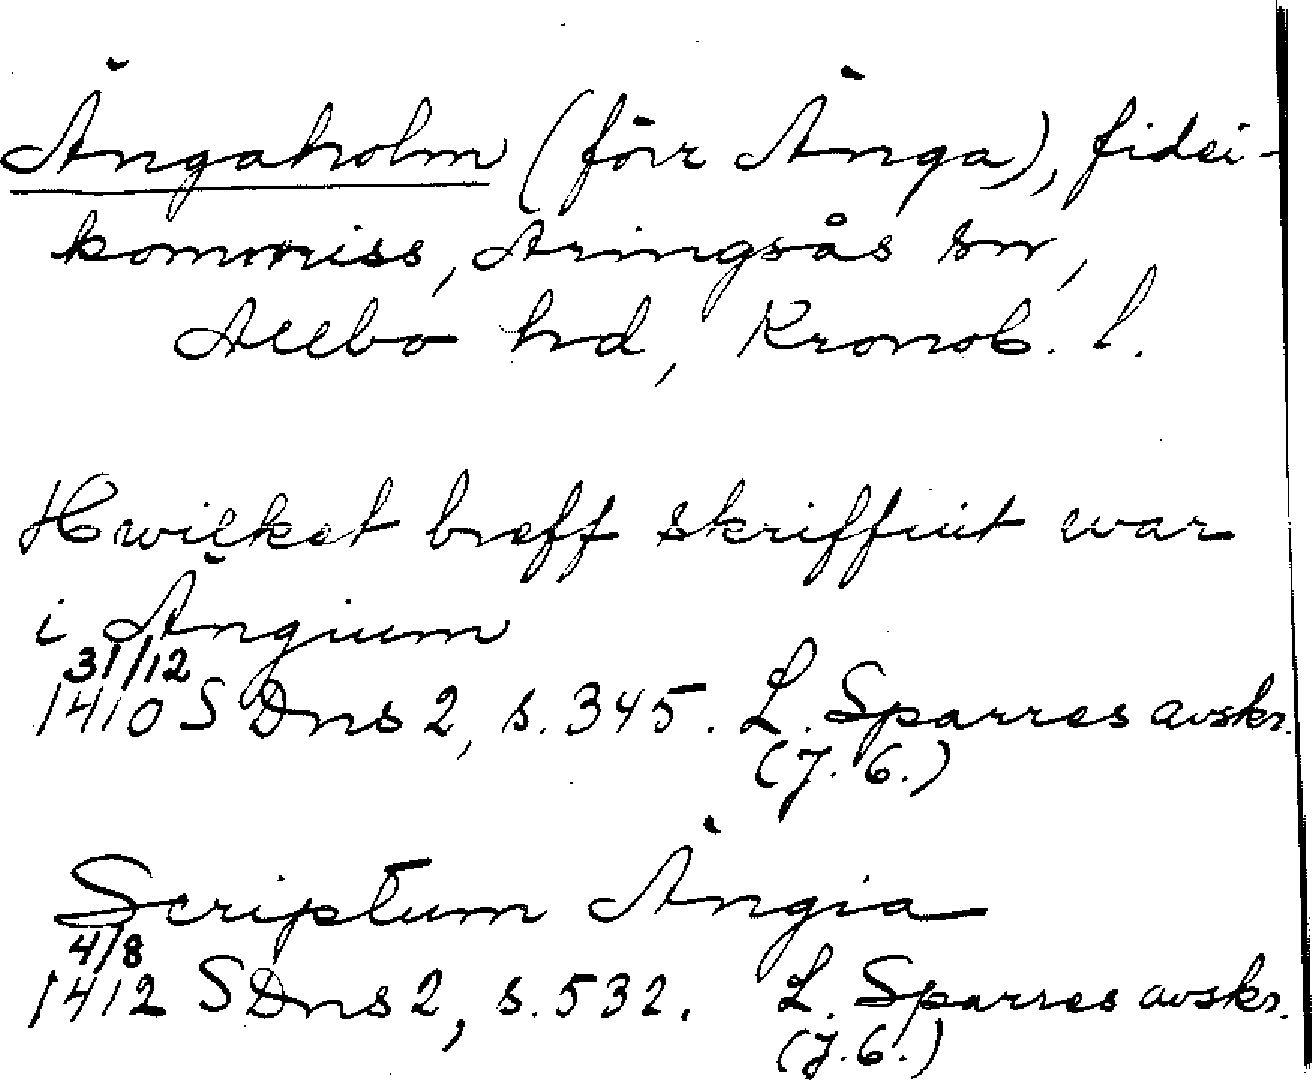 Ängaholm (förr Änga), fidei-
kommiss, Aringsås sn,
Allbo hd, Kronob. l.
Hwilket breff skriffuit war
i Ängium
31/12
1410 SDns 2, s. 345. L. Sparres avskr.
(J. 6.)
Scriptum Ängia
4/8
1412 SDns 2, s. 532. L. Sparres avskr.
(J. 6.)